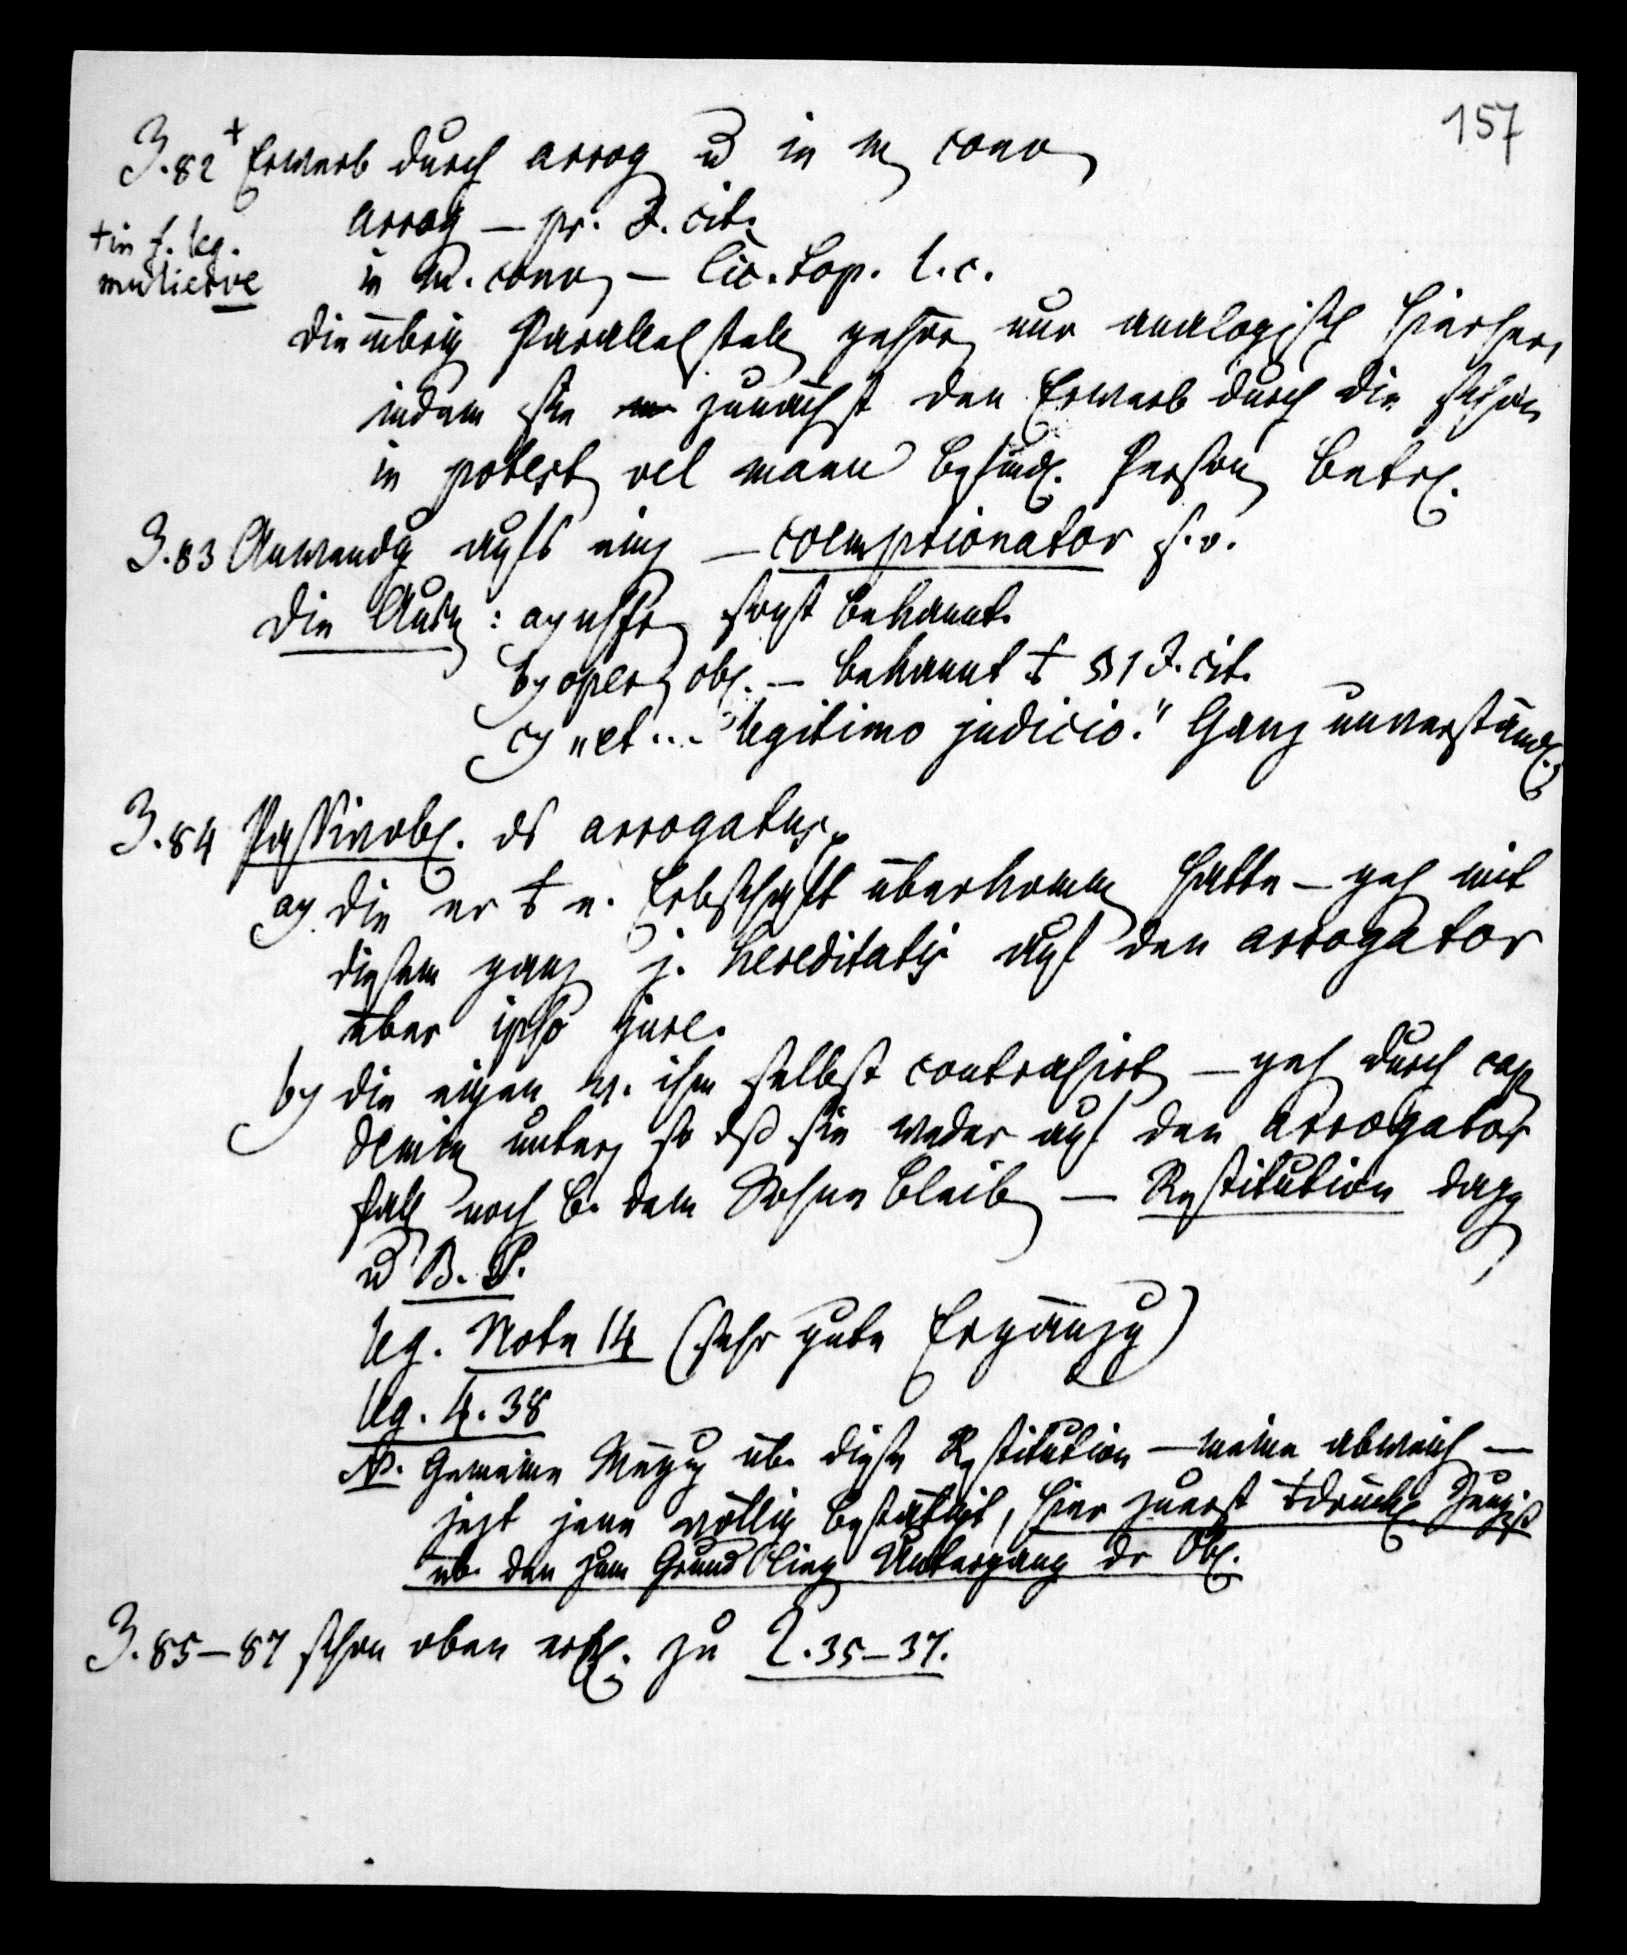 157
3.82 + Erwerb durch arrog u in m conv
+ in f. leg.
mulierve
arrog — pr. J. cit.
in m. conv — Cic. Top. l.c.
Die übrig Parallelstell gehör nur analogisch hierher,
indem sie zunächst den Erwerb durch die schon
in potest vel manu befindl. Person betr.
3.83 Anwendg aufs einz — coemptionator s.v.
Die Ausn: a) usufr sonst bekannt
b) oper obl. — bekannt § 1 J. cit.
c) "et ... legitimo judicio." Ganz unverständl.
3.84 Passivobl. ds arrogatus.
a) die er e. Erbschaft überkomm hatte — geh mit
diesem ganz j. hereditatis auf den arrogator
über ipso jure.
b) die eigen v. ihm selbst contrahirt — geh durch cap
demin unter, so dß sie weder auf den arrogator
fall noch b. dem Sohne bleib — Restitution dagg
u B. P.
Ug. Note 14 (sehr gute Ergänzg)
Ug. 4.38
N. Gemeine Meyng üb. diese Restitution — meine abweich —
jezt jene völlig bestätigt, hier zuerst drückl Zeugniß
üb. den zum Grund lieg Untergang dr Obl.
3.85–87 schon oben erkl. zu 2.35–37.